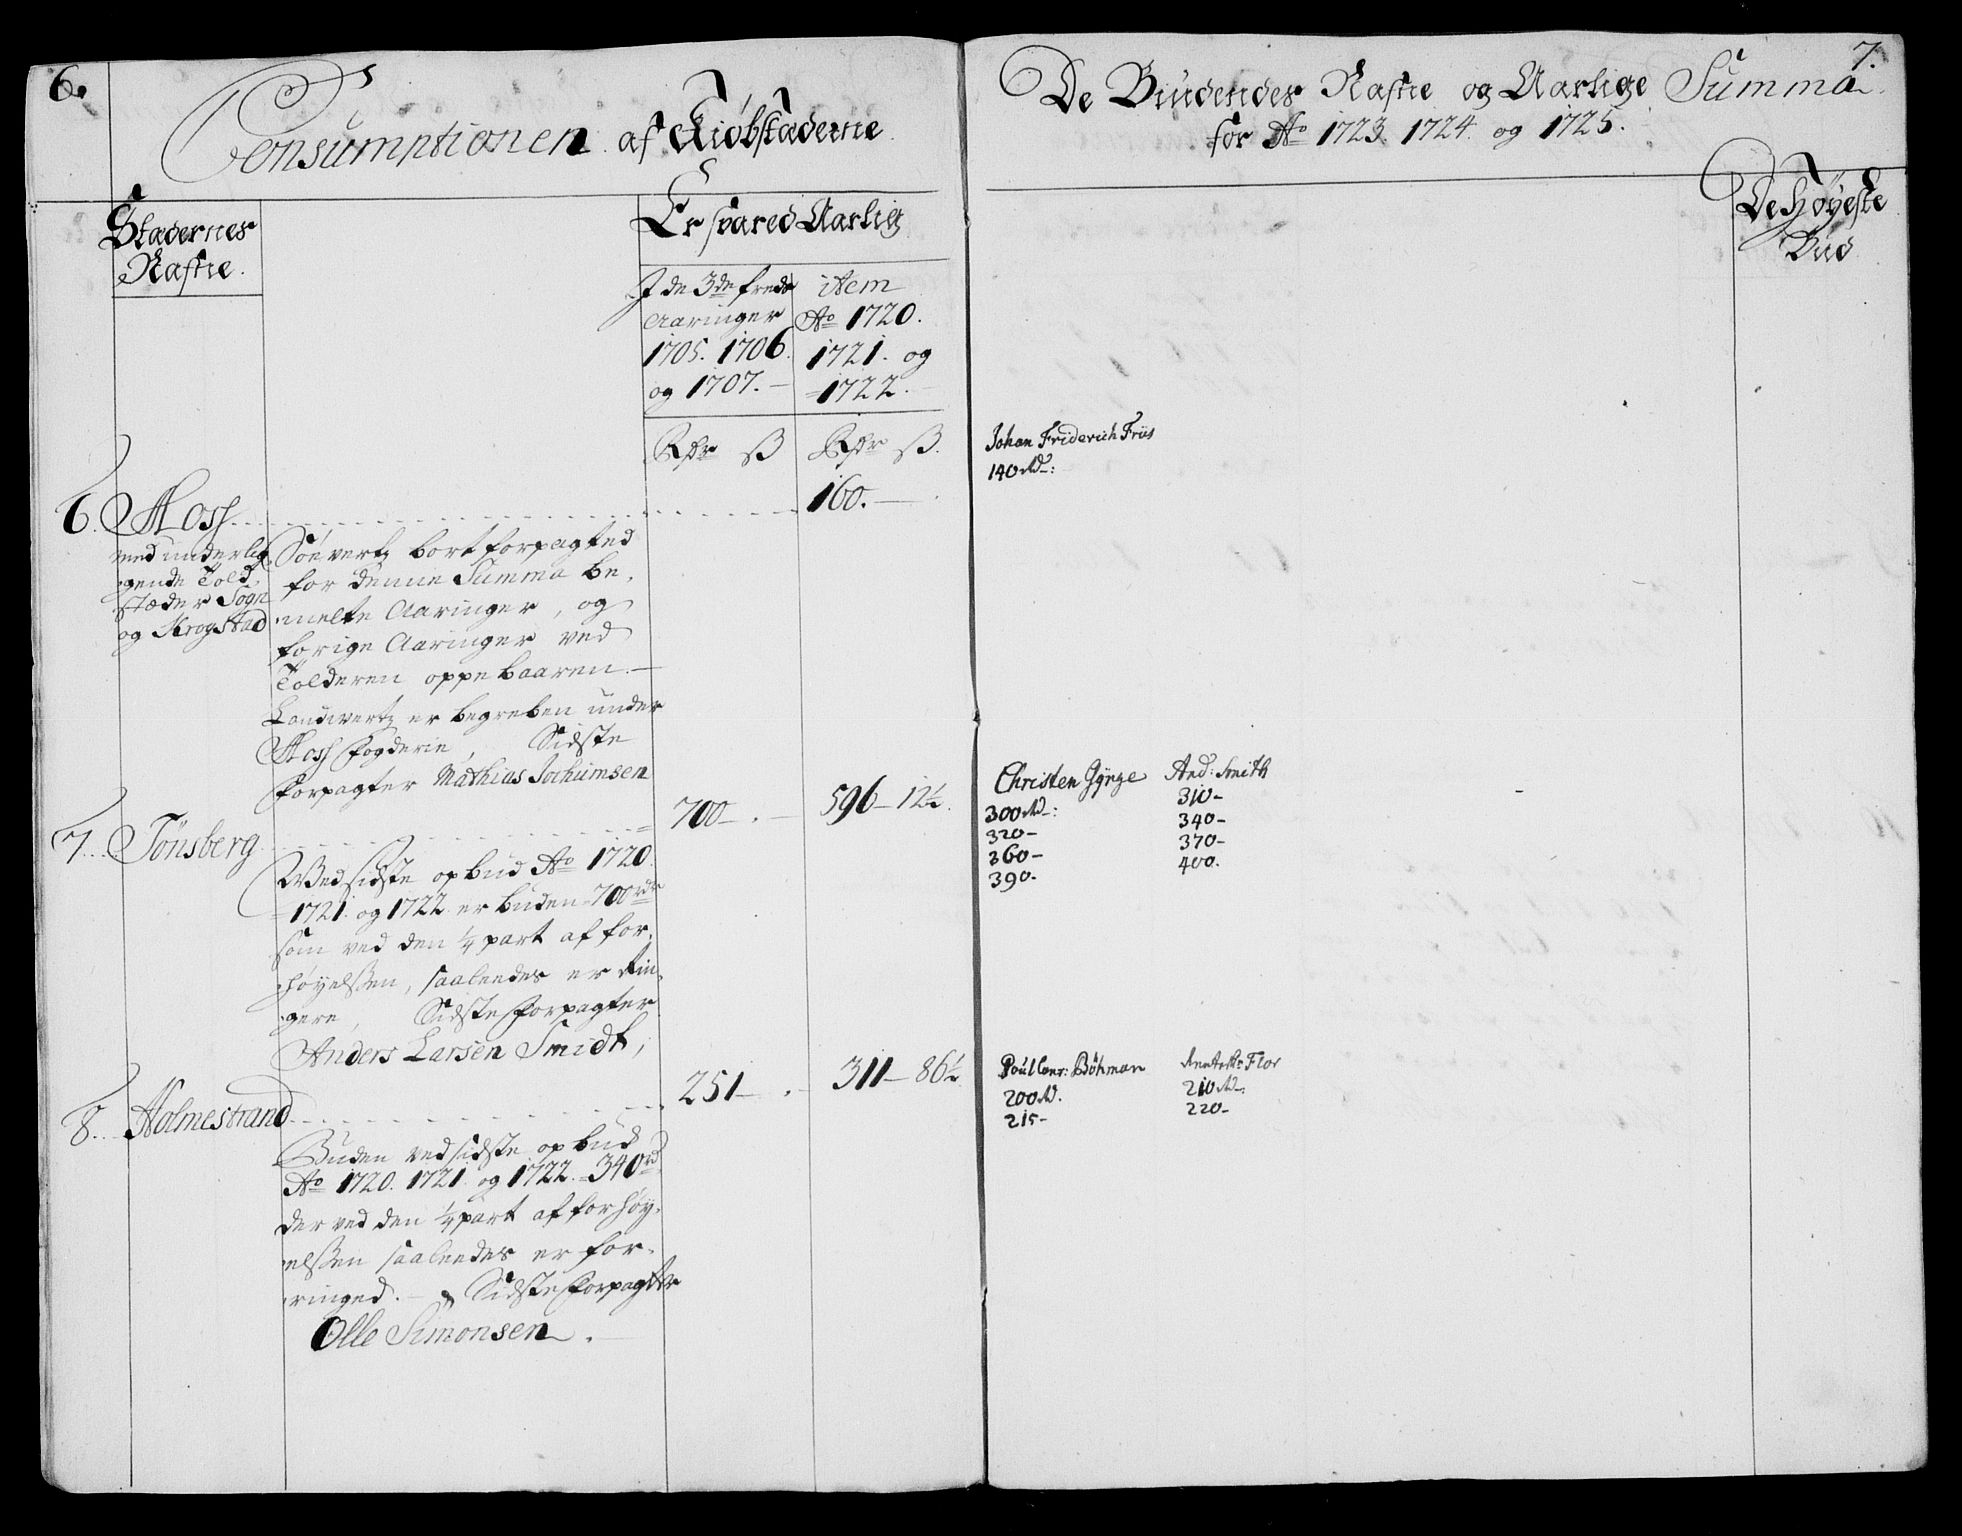 6.
Consumptionen af Kiøbstæderne
Stædernes
Nafne.
Er svared Aarlig
J de 3de freds
Aaringer
1705. 1706.
og 1707.
item
Ao 1720.
1721. og
1722.
Rdr ß
Rdr ß.
160.
6. Moss
med underlig
gende Told
stæder Sogn
og Krogstad
Søeverts bortforpagted
for denne Summa be,
melte Aaringer, og
forige Aaringer ved
Tolderen oppebaaren.
Landverts er begreben under
Moss fogderie, Sidste
Forpagter Mathias Jochumsen
7. Tönsberg
700 — . —
596 — 12½.
Ved sidste opbud Ao 1720.
1721. og 1722 er buden 700 rdr
som ved den ¼ part af for,
høyelsen, saaledes er Rin,
gere, Sidste Forpagter
Anders Larsen Smidt,
8. Holmestrand
251 — .
311 — 86½.
Buden ved sidste opbud
Ao 1720. 1721. og 1722. 340 rd
der ved den ¼ part af forhøy,
elsen saaledes er for,
ringed. — Sidste Forpagter
Olle Simonsen.
7.
De Biudendes Nafne og Aarlige Summa
for Ao 1723. 1724. og 1725.
De Høyeste
Bud
Johan Friderich Friis
140 Rd:
Christen Gÿrge
300 Rd:
320-
360-
390.
And: Smith
310-
340-
370-
400.
Poul Conr: Böhman
200 Rd.
215-
Flor
210 Rd
220-